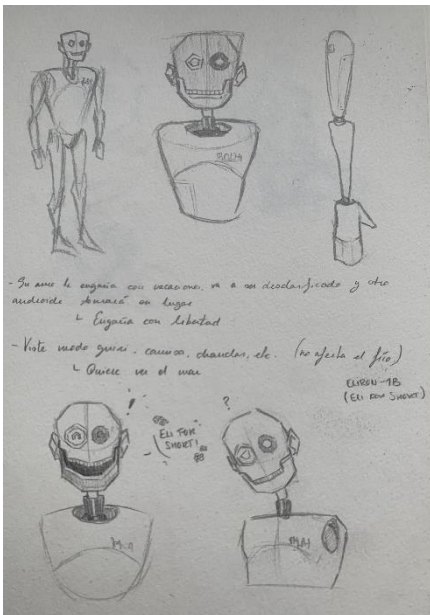 - Su amo le engaña con vacaciones, va a ser desclasificado y otro
androide tomará su lugar
↳ Engaña con libertad
- Viste modo guiri - camisa, chanclas, etc. (no afecta el frío)
↳ Quiere ver el mar
ELIRON-1B
(ELI FOR SHORT)
!
ELI FOR
SHORT!
?